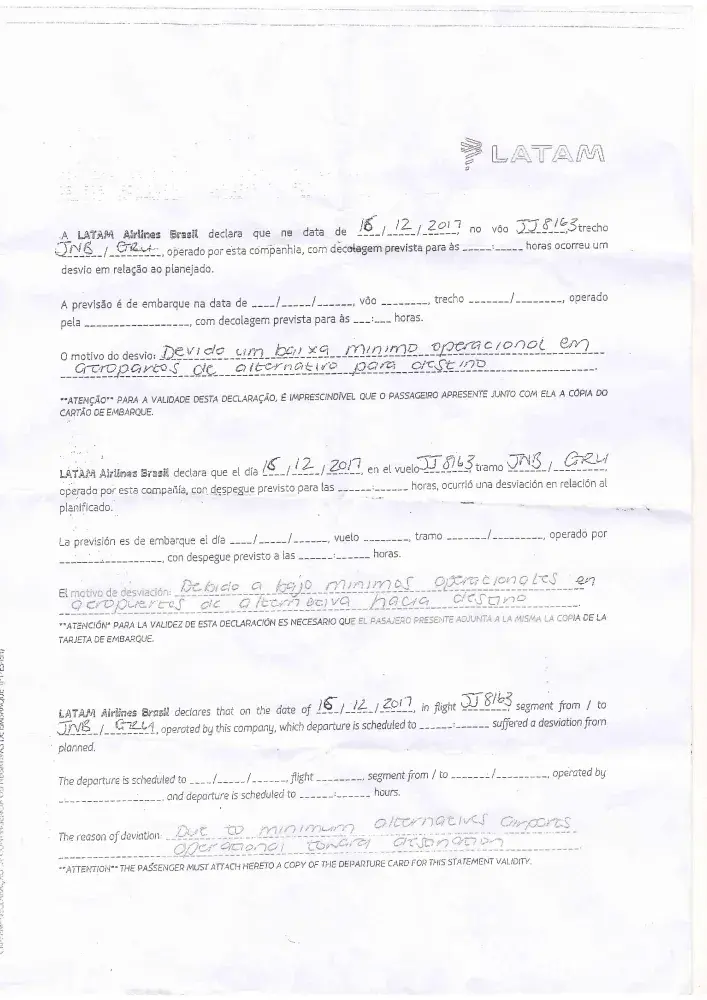 LATAM
A LATAM Airlines Brasil declara que na data de 16/12/2017 no vôo JJ8163 trecho
JNB / GRU, operado por esta companhia, com decolagem prevista para às _____:_____ horas ocorreu um
desvio em relação ao planejado.
A previsão é de embarque na data de ____/_____/______, vôo ________, trecho _______/________, operado
pela __________________, com decolagem prevista para às ___:___ horas.
O motivo do desvio: Devido um baixa minimo operacional em
aeroportos de alternativo para destino
**ATENÇÃO** PARA A VALIDADE DESTA DECLARAÇÃO, É IMPRESCINDÍVEL QUE O PASSAGEIRO APRESENTE JUNTO COM ELA A CÓPIA DO
CARTÃO DE EMBARQUE.
LATAM Airlines Brasil declara que el día 16/12/2017, en el vuelo JJ8163 tramo JNB / GRU,
operado por esta compañía, con despegue previsto para las ______:______ horas, ocurrió una desviación en relación al
planificado.
La previsión es de embarque el día ____/_____/______, vuelo ________, tramo _______/_________, operado por
__________________, con despegue previsto a las ______:______ horas.
El motivo de desviación: Debido a bajo minimos operacionales en
aeropuertos de alternativa hacia destino
**ATENCIÓN* PARA LA VALIDEZ DE ESTA DECLARACIÓN ES NECESARIO QUE EL PASAJERO PRESENTE ADJUNTA A LA MISMA LA COPIA DE LA
TARJETA DE EMBARQUE.
LATAM Airlines Brasil declares that on the date of 16/12/2017, in flight JJ8163 segment from / to
JNB / GRU, operated by this company, which departure is scheduled to ______:______ suffered a desviation from
planned.
The departure is scheduled to ____/_____/______, flight ________, segment from / to _______/_________, operated by
__________________, and departure is scheduled to ______:______ hours.
The reason of deviation: Due to minimum alternatives airports
operational toward
**ATTENTION** THE PASSENGER MUST ATTACH HERETO A COPY OF THE DEPARTURE CARD FOR THIS STATEMENT VALIDITY.